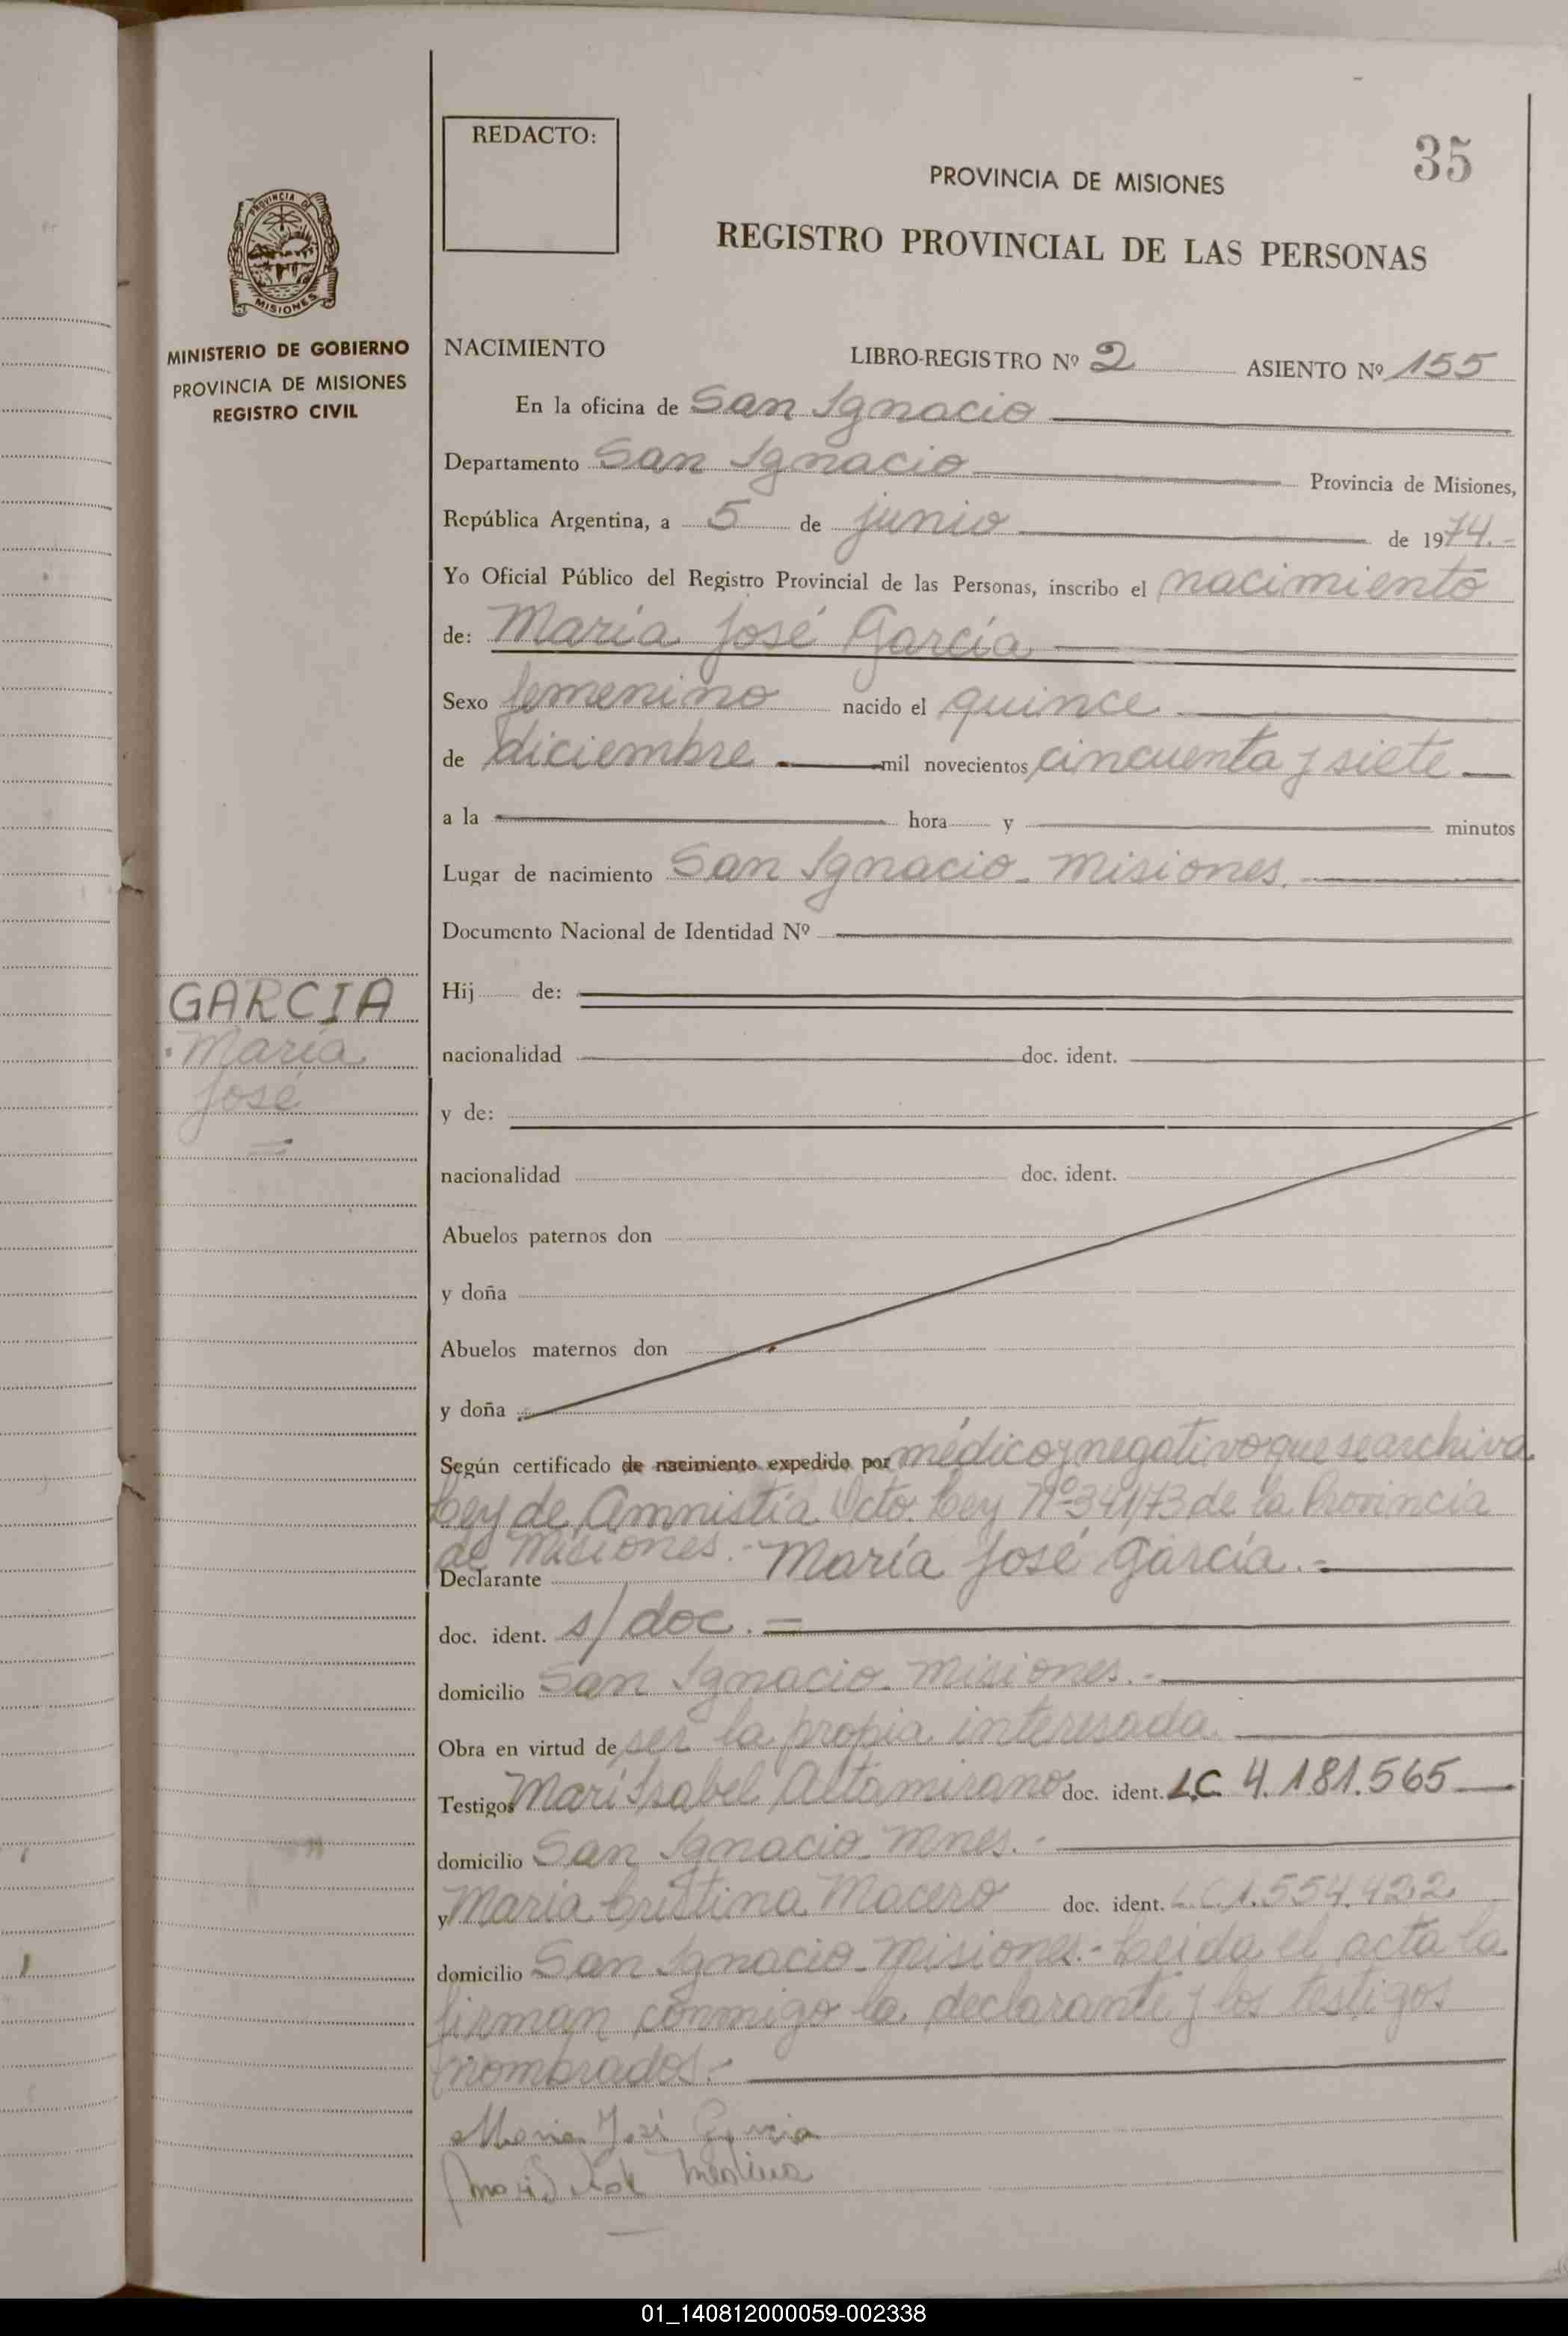 REDACTO:
35
PROVINCIA DE MISIONES
REGISTRO PROVINCIAL DE LAS PERSONAS
PROVINCIA DE
MISIONES
MINISTERIO DE GOBIERNO
PROVINCIA DE MISIONES
REGISTRO CIVIL
NACIMIENTO LIBRO-REGISTRO Nº 2 ASIENTO Nº 155
En la oficina de San Ignacio
Departamento San Ignacio Provincia de Misiones,
República Argentina, a 5 de junio de 1974.-
Yo Oficial Público del Registro Provincial de las Personas, inscribo el nacimiento
de: María José García
Sexo femenino nacido el quince
de diciembre mil novecientos cincuenta y siete
a la hora y minutos
Lugar de nacimiento San Ignacio - Misiones.
Documento Nacional de Identidad Nº
GARCIA
María
José
Hij de:
nacionalidad doc. ident.
y de:
nacionalidad doc. ident.
Abuelos paternos don
y doña
Abuelos maternos don
y doña
Según certificado de nacimiento expedido por médico y negativo que se archiva
Ley de Amnistía Dcto. Ley Nº 341/73 de la Provincia
de Misiones.-
Declarante María José García.-
doc. ident. s/doc.=
domicilio San Ignacio - Misiones.-
Obra en virtud de ser la propia interesada
Testigos Marí Isabel Altamirano doc. ident. L.C. 4.181.565
domicilio San Ignacio - Mnes.-
y María Cristina Macero doc. ident. L.C. 1.554.422
domicilio San Ignacio - Misiones.- Leida el acta la
firman conmigo la declarante y los testigos
nombrados.-
Maria José Garcia
01_140812000059-002338